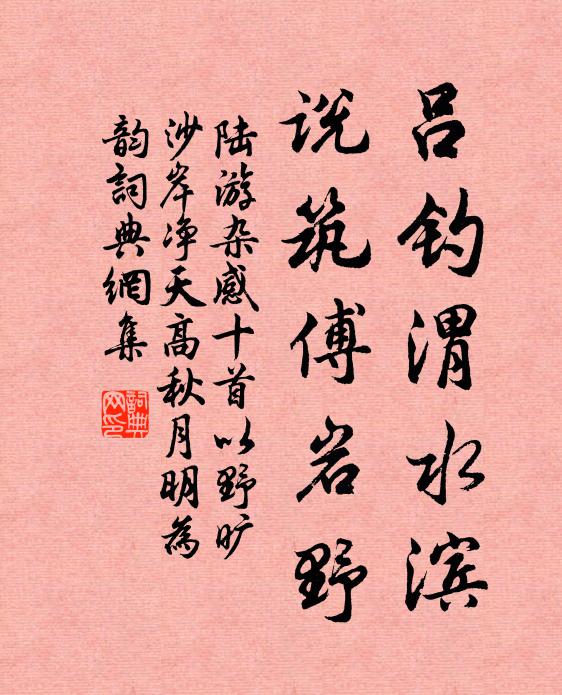 吕钓渭水滨
说筑傅岩野
陆游杂感十首以野旷
沙岸净天高秋月明为
韵詞典網集
詞典网印